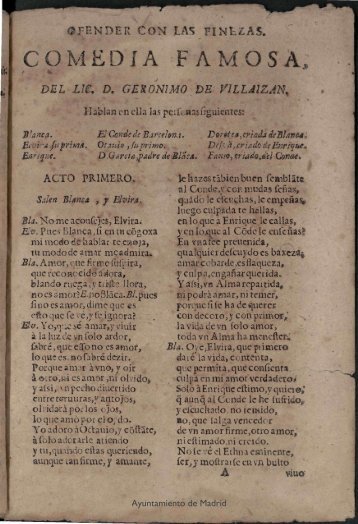 OFENDER CON LAS FINEZAS.
COMEDIA FAMOSA,
DEL LIC. D. GERONIMO DE VILLAIZAN.
Hablan en ella las personas siguientes:
Blanca. El Conde de Barcelona. Dorotea, criada de Blanca.
Elvira, su prima. Otauio, su primo. criado de Enrique.
Enrique. D Garcia, padre de Blãca. Fauno, criado del Conde.
ACTO PRIMERO.
Salen Blanca, y Elvira.
Bla. No me aconsejes, Elvira.
Elv. Pues Blanca, si en tu cõgoxa
mi modo de hablar te enoja,
tu modo de amar me admira.
Bla. Amor, que firme suspira,
que reconocido adora,
blando ruega, y triste llora,
no es amor? El. no Blãca. Bl. pues
sino es amor, dime que es
esto que se ve, y se ignora?
Elv. Yo, que sé amar, y viuir
à la luz de vn solo ardor,
sabré, que esso no es amor,
lo que es, no sabré dezir.
Porque amar à vno, y oir
à otro, ni es amor, ni olvido,
y assi, vn pecho diuertido
entre ternuras, y antojos,
olvidarà por los ojos,
lo que amò por el oydo.
Yo adoro à Octauio, y cõstãte,
à solo adorarle atiendo
y tu, quando estàs queriendo,
aunque tan firme, y amante,
le hazes tàbien buen semblãte
al Conde, y con mudas señas,
quãdo le escuchas, le empeñas,
luego culpada te hallas,
en lo que a Enrique le callas,
y en lo que al Cõde le enseñas?
En vna fee preuenida,
qualquier descuydo es baxeza,
amar cobarde es flaqueza,
y culpa, engañar querida.
Y assi, vn Alma repartida,
ni podrà amar, ni temer,
porque si se ha de querer
con decoro, y con primor,
la vida de vn solo amor,
toda vn Alma ha menester.
Bla. Oye, Elvira, que primero
darè la vida, contenta,
que permita, que consienta
culpa en mi amor verdadero.
Solo à Enrique estimo, y quiero,
q̃ aunq̃ al Conde le he sufrido,
y escuchado, no temido,
no, que salga vencedor
de vn amor firme, otro amor,
ni estimado, ni creido.
No se vè el Ethna eminente,
ser, y mostrarse en vn bulto
A viuo
Ayuntamiento de Madrid